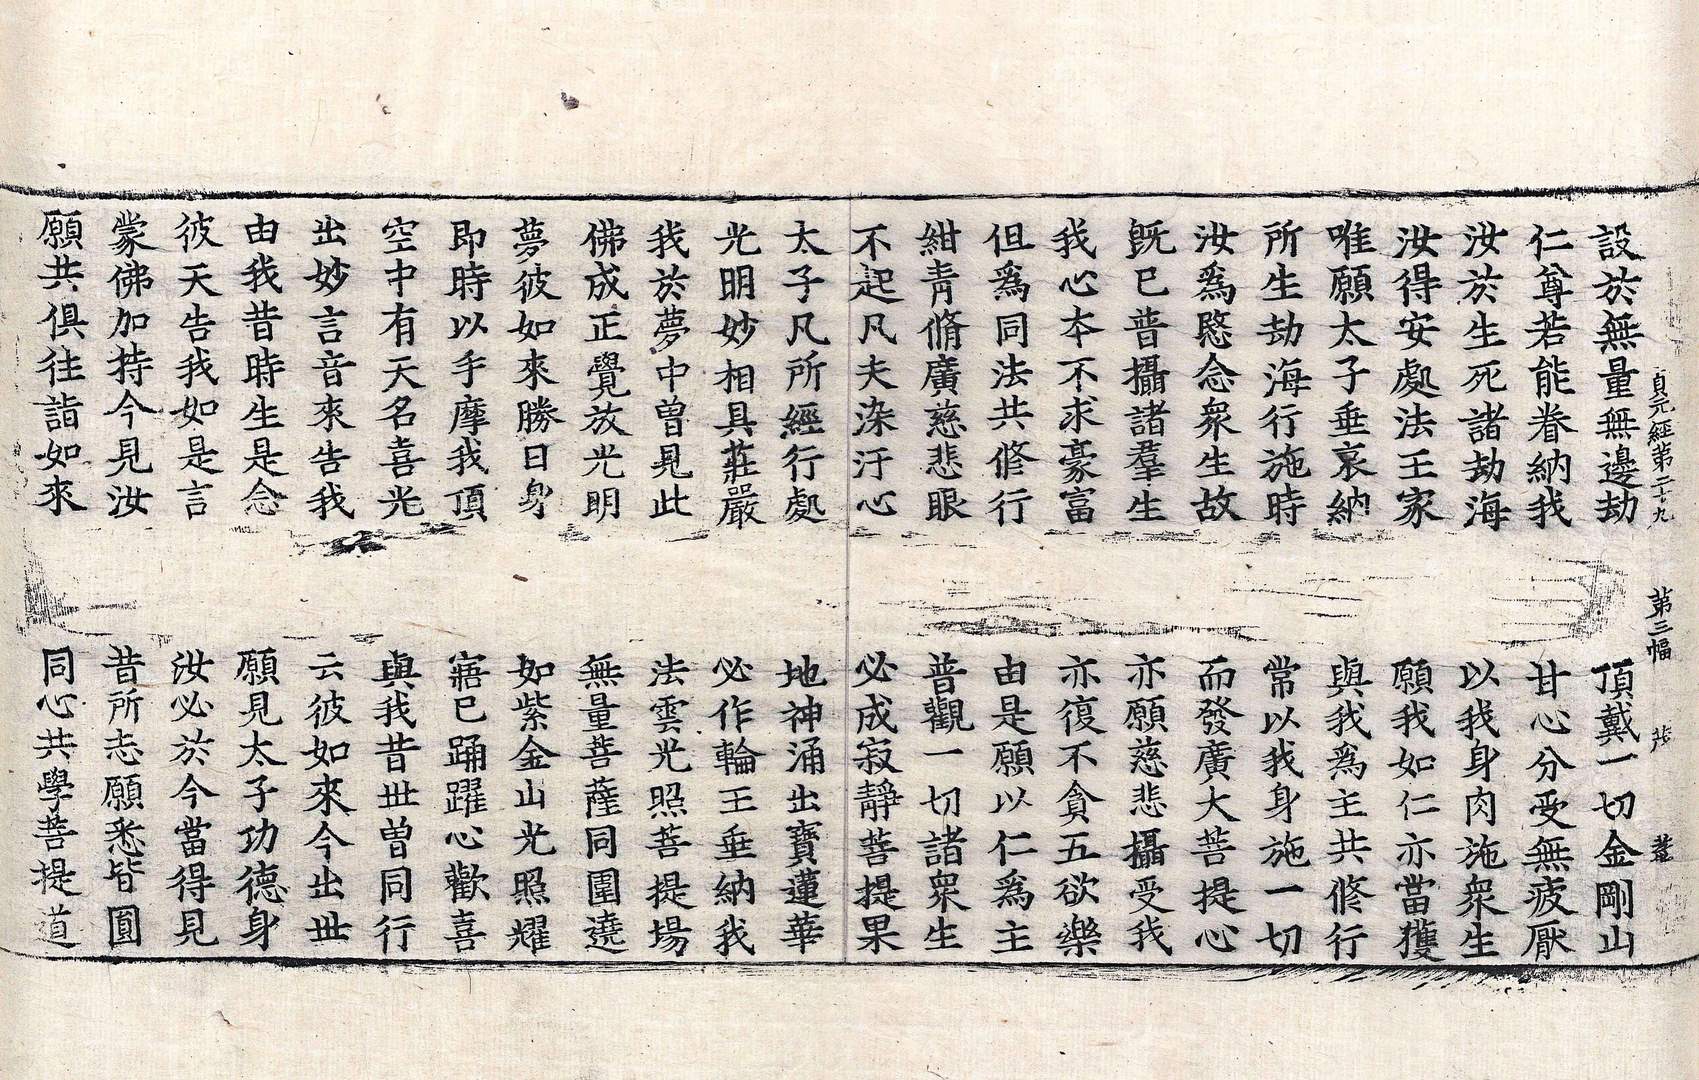 貞元經第二十九 第三幅
設於無量無邊劫 頂戴一切金剛山
仁尊若能眷納我 甘心分受無疲厭
汝於生死諸劫海 以我身肉施衆生
汝得安處法王家 願我如仁亦當獲
唯願太子垂哀納 與我爲主共修行
所生劫海行施時 常以我身施一切
汝爲愍念衆生故 而發廣大菩提心
旣已普攝諸羣生 亦願慈悲攝受我
我心本不求豪富 亦復不貪五欲樂
但爲同法共修行 由是願以仁爲主
紺靑脩廣慈悲眼 普觀一切諸衆生
不起凡夫染汙心 必成寂靜菩提果
太子凡所經行處 地神涌出寶蓮華
光明妙相具莊嚴 必作輪王垂納我
我於夢中曾見此 法雲光照菩提場
佛成正覺放光明 無量菩薩同圍遶
夢彼如來勝日身 如紫金山光照耀
即時以手摩我頂 寤已踊躍心歡喜
空中有天名喜光 與我昔世曾同行
出妙言音來告我 云彼如來今出世
由我昔時生是念 願見太子功德身
彼天告我如是言 汝必於今當得見
蒙佛加持今見汝 昔所志願悉皆圓
願共俱往詣如來 同心共學菩提道